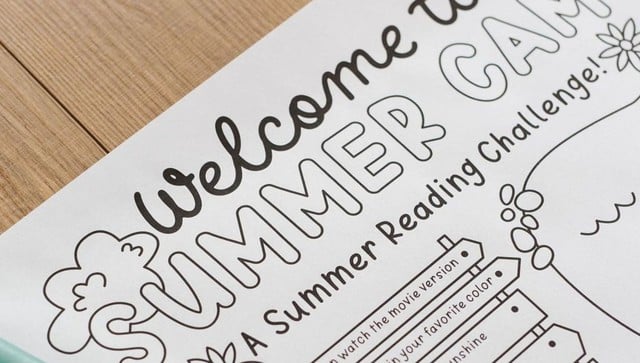 Welcome to
SUMMER CAMP
A Summer Reading Challenge!
watch the movie version
in your favorite color